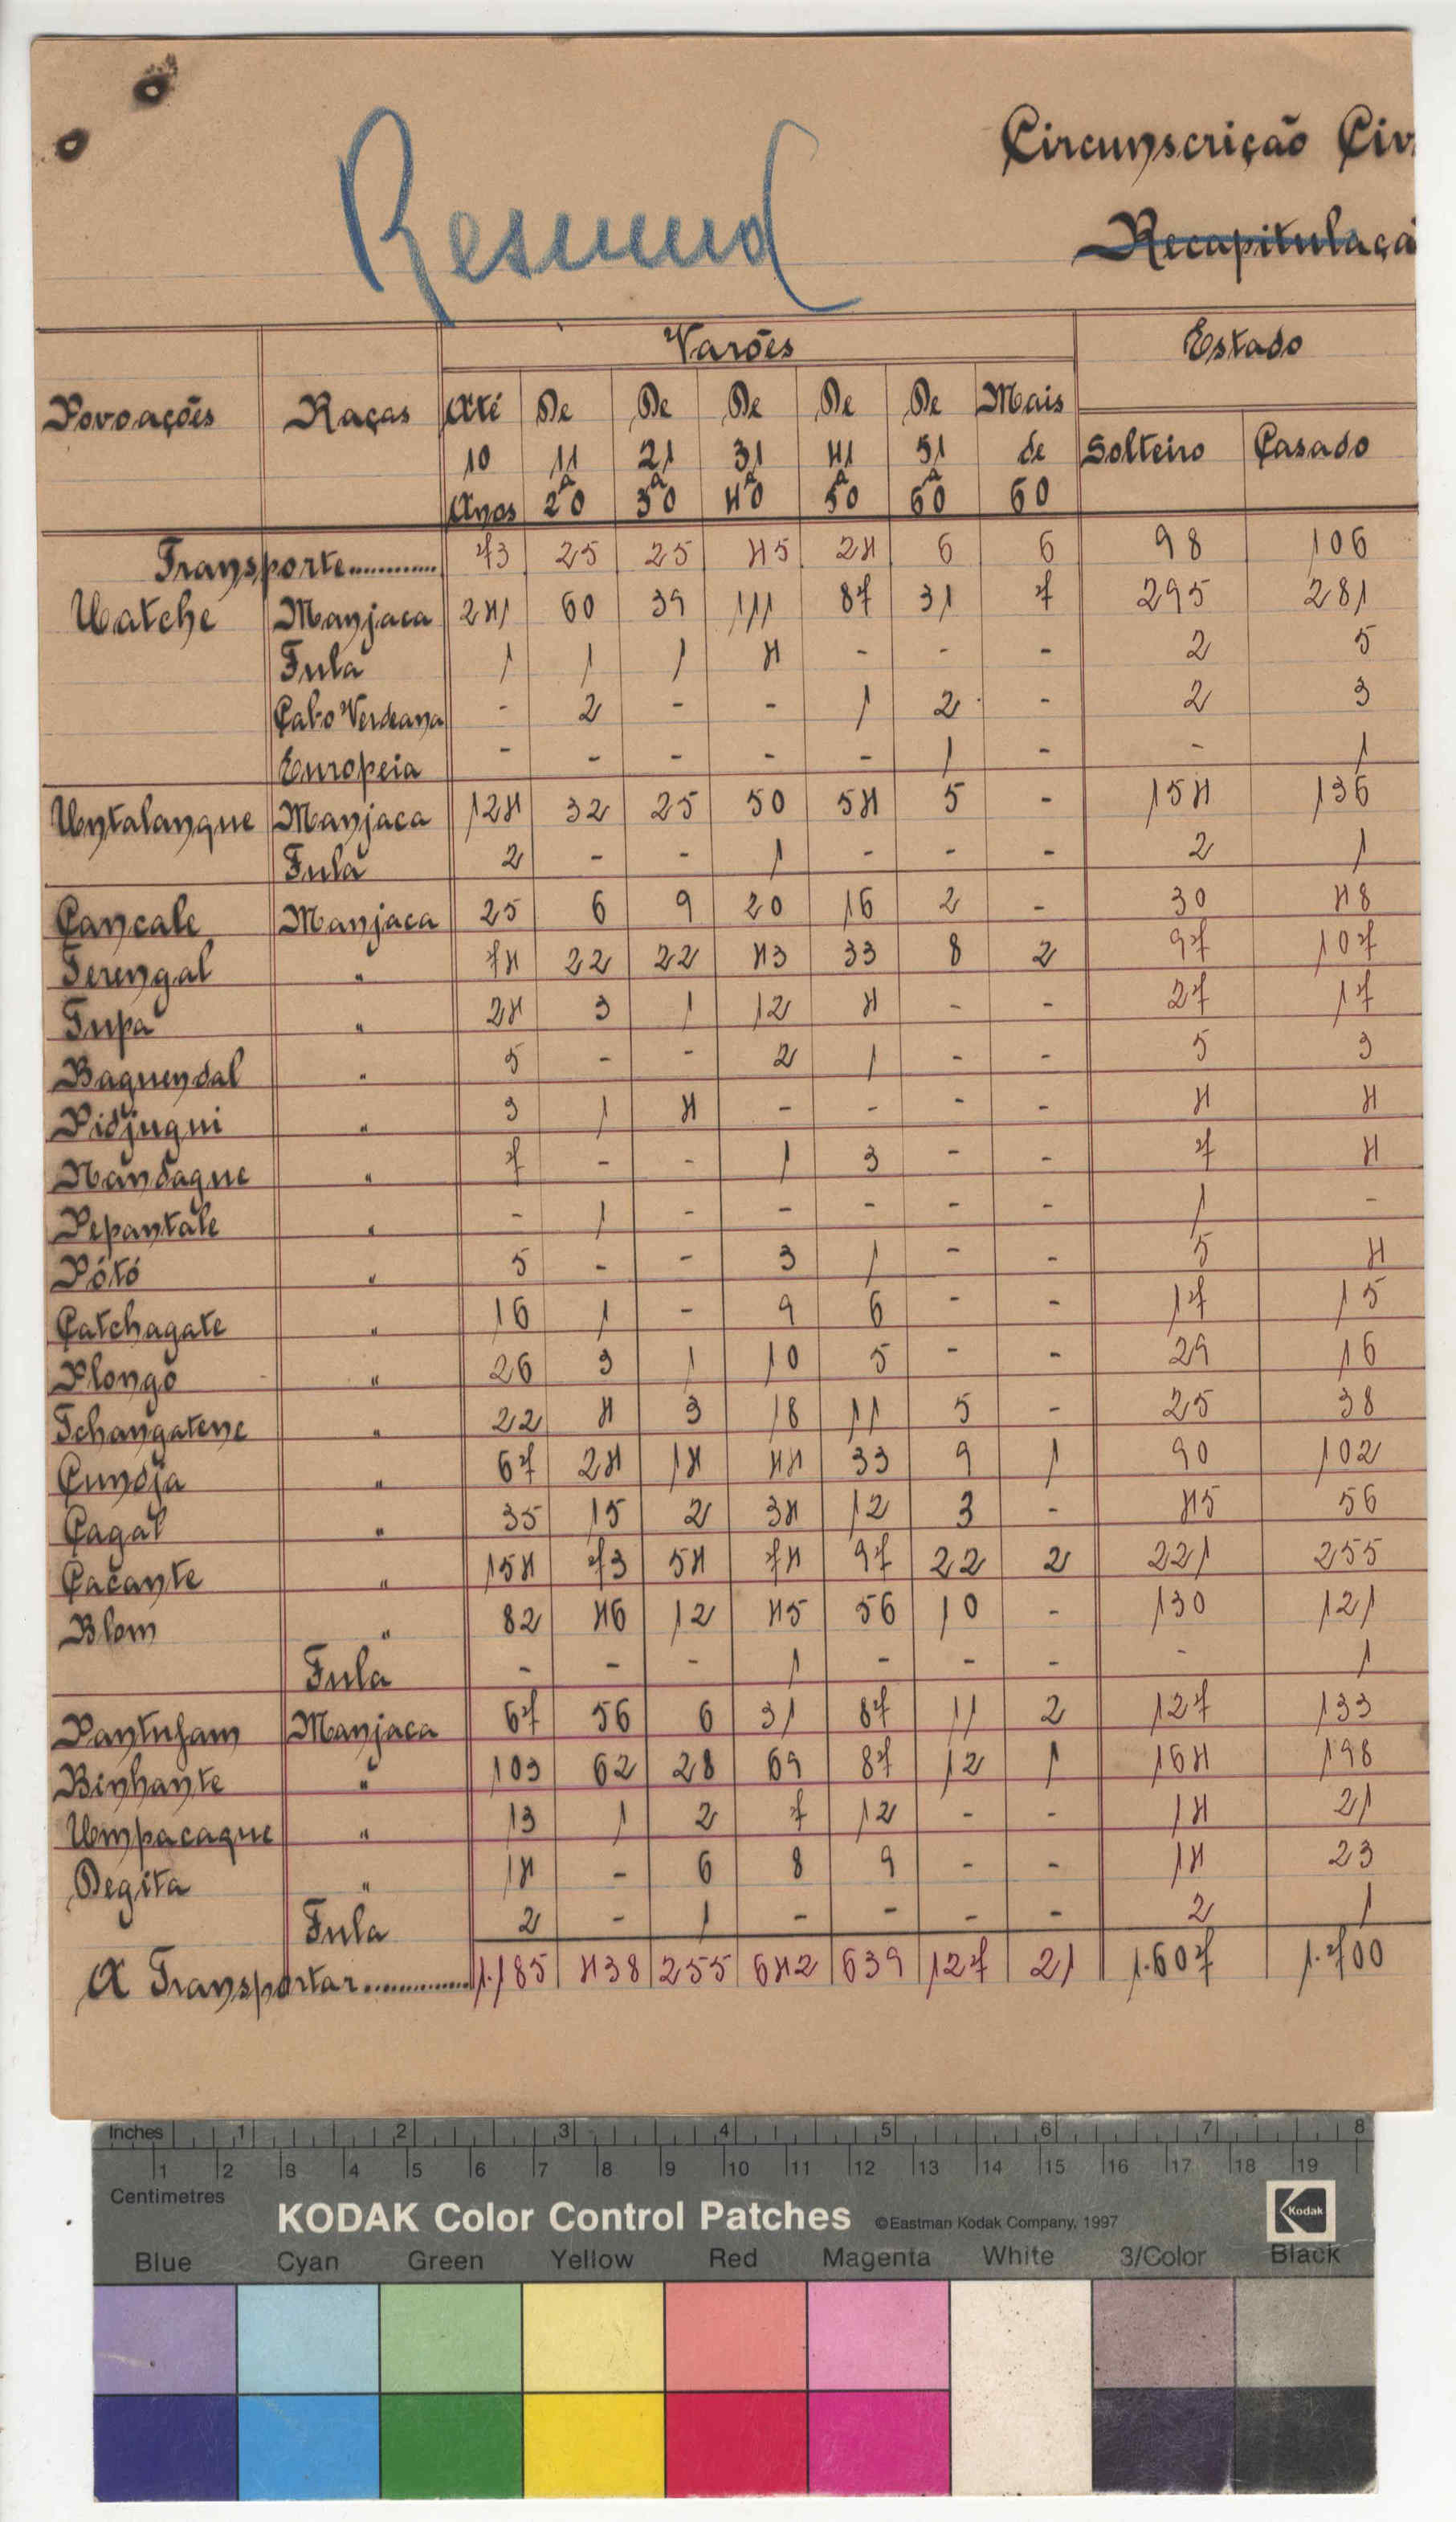 Resumo
Circunscrição Civ
Recapitulaçã
Povoações Raças Varões Estado
Até 10 Anos De 11 a 20 De 21 a 30 De 31 a 40 De 41 a 50 De 51 a 60 Mais de 60 Solteiro Casado
Transporte............ 73 25 25 45 24 6 6 98 106
Uatche Manjaca 241 60 39 111 87 31 7 295 281
Fula 1 1 1 4 - - - 2 5
Cabo Verdeana - 2 - - 1 2 - 2 3
Europeia - - - - - 1 - - 1
Untalangue Manjaca 124 32 25 50 54 5 - 154 136
Fula 2 - - 1 - - - 2 1
Cancale Manjaca 25 6 9 20 16 2 - 30 48
Terengal " 74 22 22 43 33 8 2 97 107
Tupa " 24 3 1 12 4 - - 27 17
Baguendal " 5 - - 2 1 - - 5 3
Pidjugui " 3 1 4 - - - - 4 4
Nandague " 7 - - 1 3 - - 7 4
Pepantale " - 1 - - - - - 1 -
Pótó " 5 - - 3 1 - - 5 4
Catchagate " 16 1 - 9 6 - - 17 15
Plongo " 26 3 1 10 5 - - 29 16
Tchangatene " 22 4 3 18 11 5 - 25 38
Cundja " 67 24 14 44 33 9 1 90 102
Cagal " 35 15 2 34 12 3 - 45 56
Cacante " 154 73 54 74 97 22 2 221 255
Blom " 82 46 12 45 56 10 - 130 121
Fula - - - 1 - - - - 1
Pantufam Manjaca 67 56 6 31 87 11 2 127 133
Binhante " 103 62 28 69 87 12 1 164 198
Umpacaque " 13 1 2 7 12 - - 14 21
Degita " 14 - 6 8 9 - - 14 23
Fula 2 - 1 - - - - 2 1
A Transportar............ 1.185 438 255 642 639 127 21 1.607 1.700
Inches 1 2 3 4 5 6 7 8
1 2 3 4 5 6 7 8 9 10 11 12 13 14 15 16 17 18 19
Centimetres
KODAK Color Control Patches ©Eastman Kodak Company, 1997 Kodak
Blue Cyan Green Yellow Red Magenta White 3/Color Black